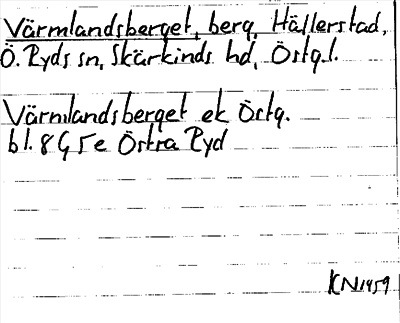 Värmlandsberget, berg, Hällerstad,
Ö. Ryds sn, Skärkinds hd, Östg.l.
Värmlandsberget ek Östg.
bl. 8G 5e Östra Ryd
KN 1959